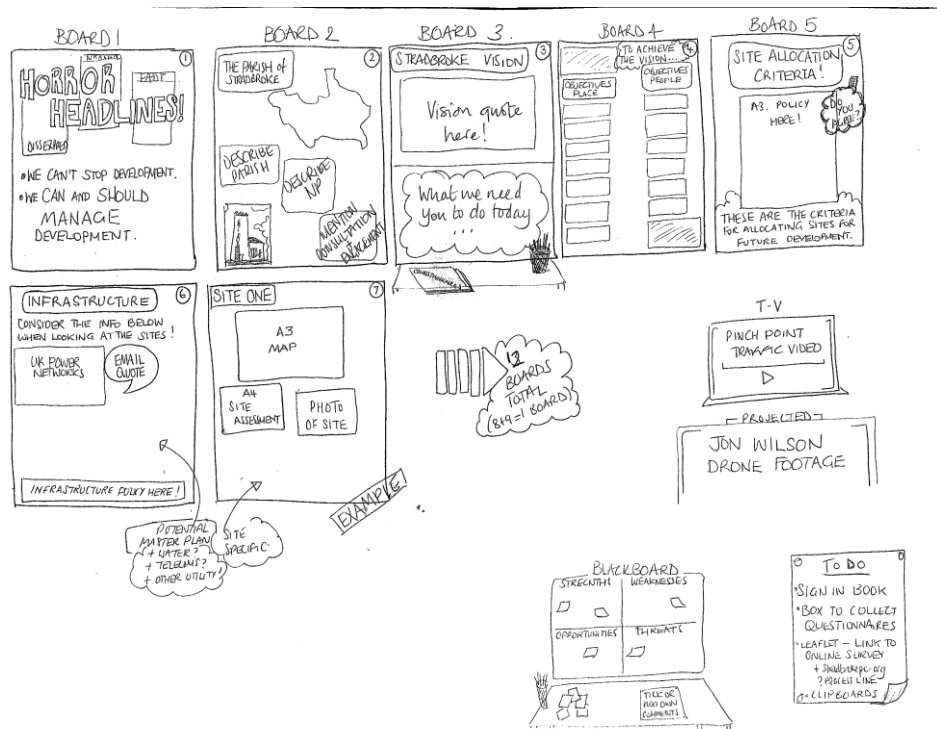 BOARD 1
①
HORROR
HEADLINES!
EADT
• WE CAN'T STOP DEVELOPMENT.
• WE CAN AND SHOULD
MANAGE
DEVELOPMENT.
BOARD 2
②
THE PARISH OF
STRADBROKE
DESCRIBE
PARISH
DESCRIBE
NP
MENTION
CONSULTATION
BOARD 3.
③
STRADBROKE VISION
Vision quote
here!
What we need
you to do today
...
BOARD 4
④
TO ACHIEVE
THE VISION...
OBJECTIVES
PLACE
OBJECTIVES
PEOPLE
BOARD 5
⑤
SITE ALLOCATION
CRITERIA!
A3. POLICY
HERE!
DO
YOU
AGREE?
THESE ARE THE CRITERIA
FOR ALLOCATING SITES FOR
FUTURE DEVELOPMENT.
⑥
INFRASTRUCTURE
CONSIDER THE INFO BELOW
WHEN LOOKING AT THE SITES!
UK POWER
NETWORKS
EMAIL
QUOTE
INFRASTRUCTURE POLICY HERE!
POTENTIAL
MASTER PLAN
+ WATER?
+ TELECOMS?
+ OTHER UTILITY!
⑦
SITE ONE
A3
MAP
A4
SITE
ASSESMENT
PHOTO
OF SITE
SITE
SPECIFIC
EXAMPLE
BOARDS
TOTAL
(8+9=1 BOARD)
T-V
PINCH POINT
TRAFFIC VIDEO
PROJECTED
JON WILSON
DRONE FOOTAGE
BLACKBOARD
STRENGTHS
WEAKNESSES
OPPORTUNITIES
THREATS
TICK OR
ADD OWN
COMMENTS
TO DO
• SIGN IN BOOK
• BOX TO COLLECT
QUESTIONNAIRES
• LEAFLET – LINK TO
ONLINE SURVEY
+ stradbrokepc.org
? PROCESS LINE
CLIPBOARDS